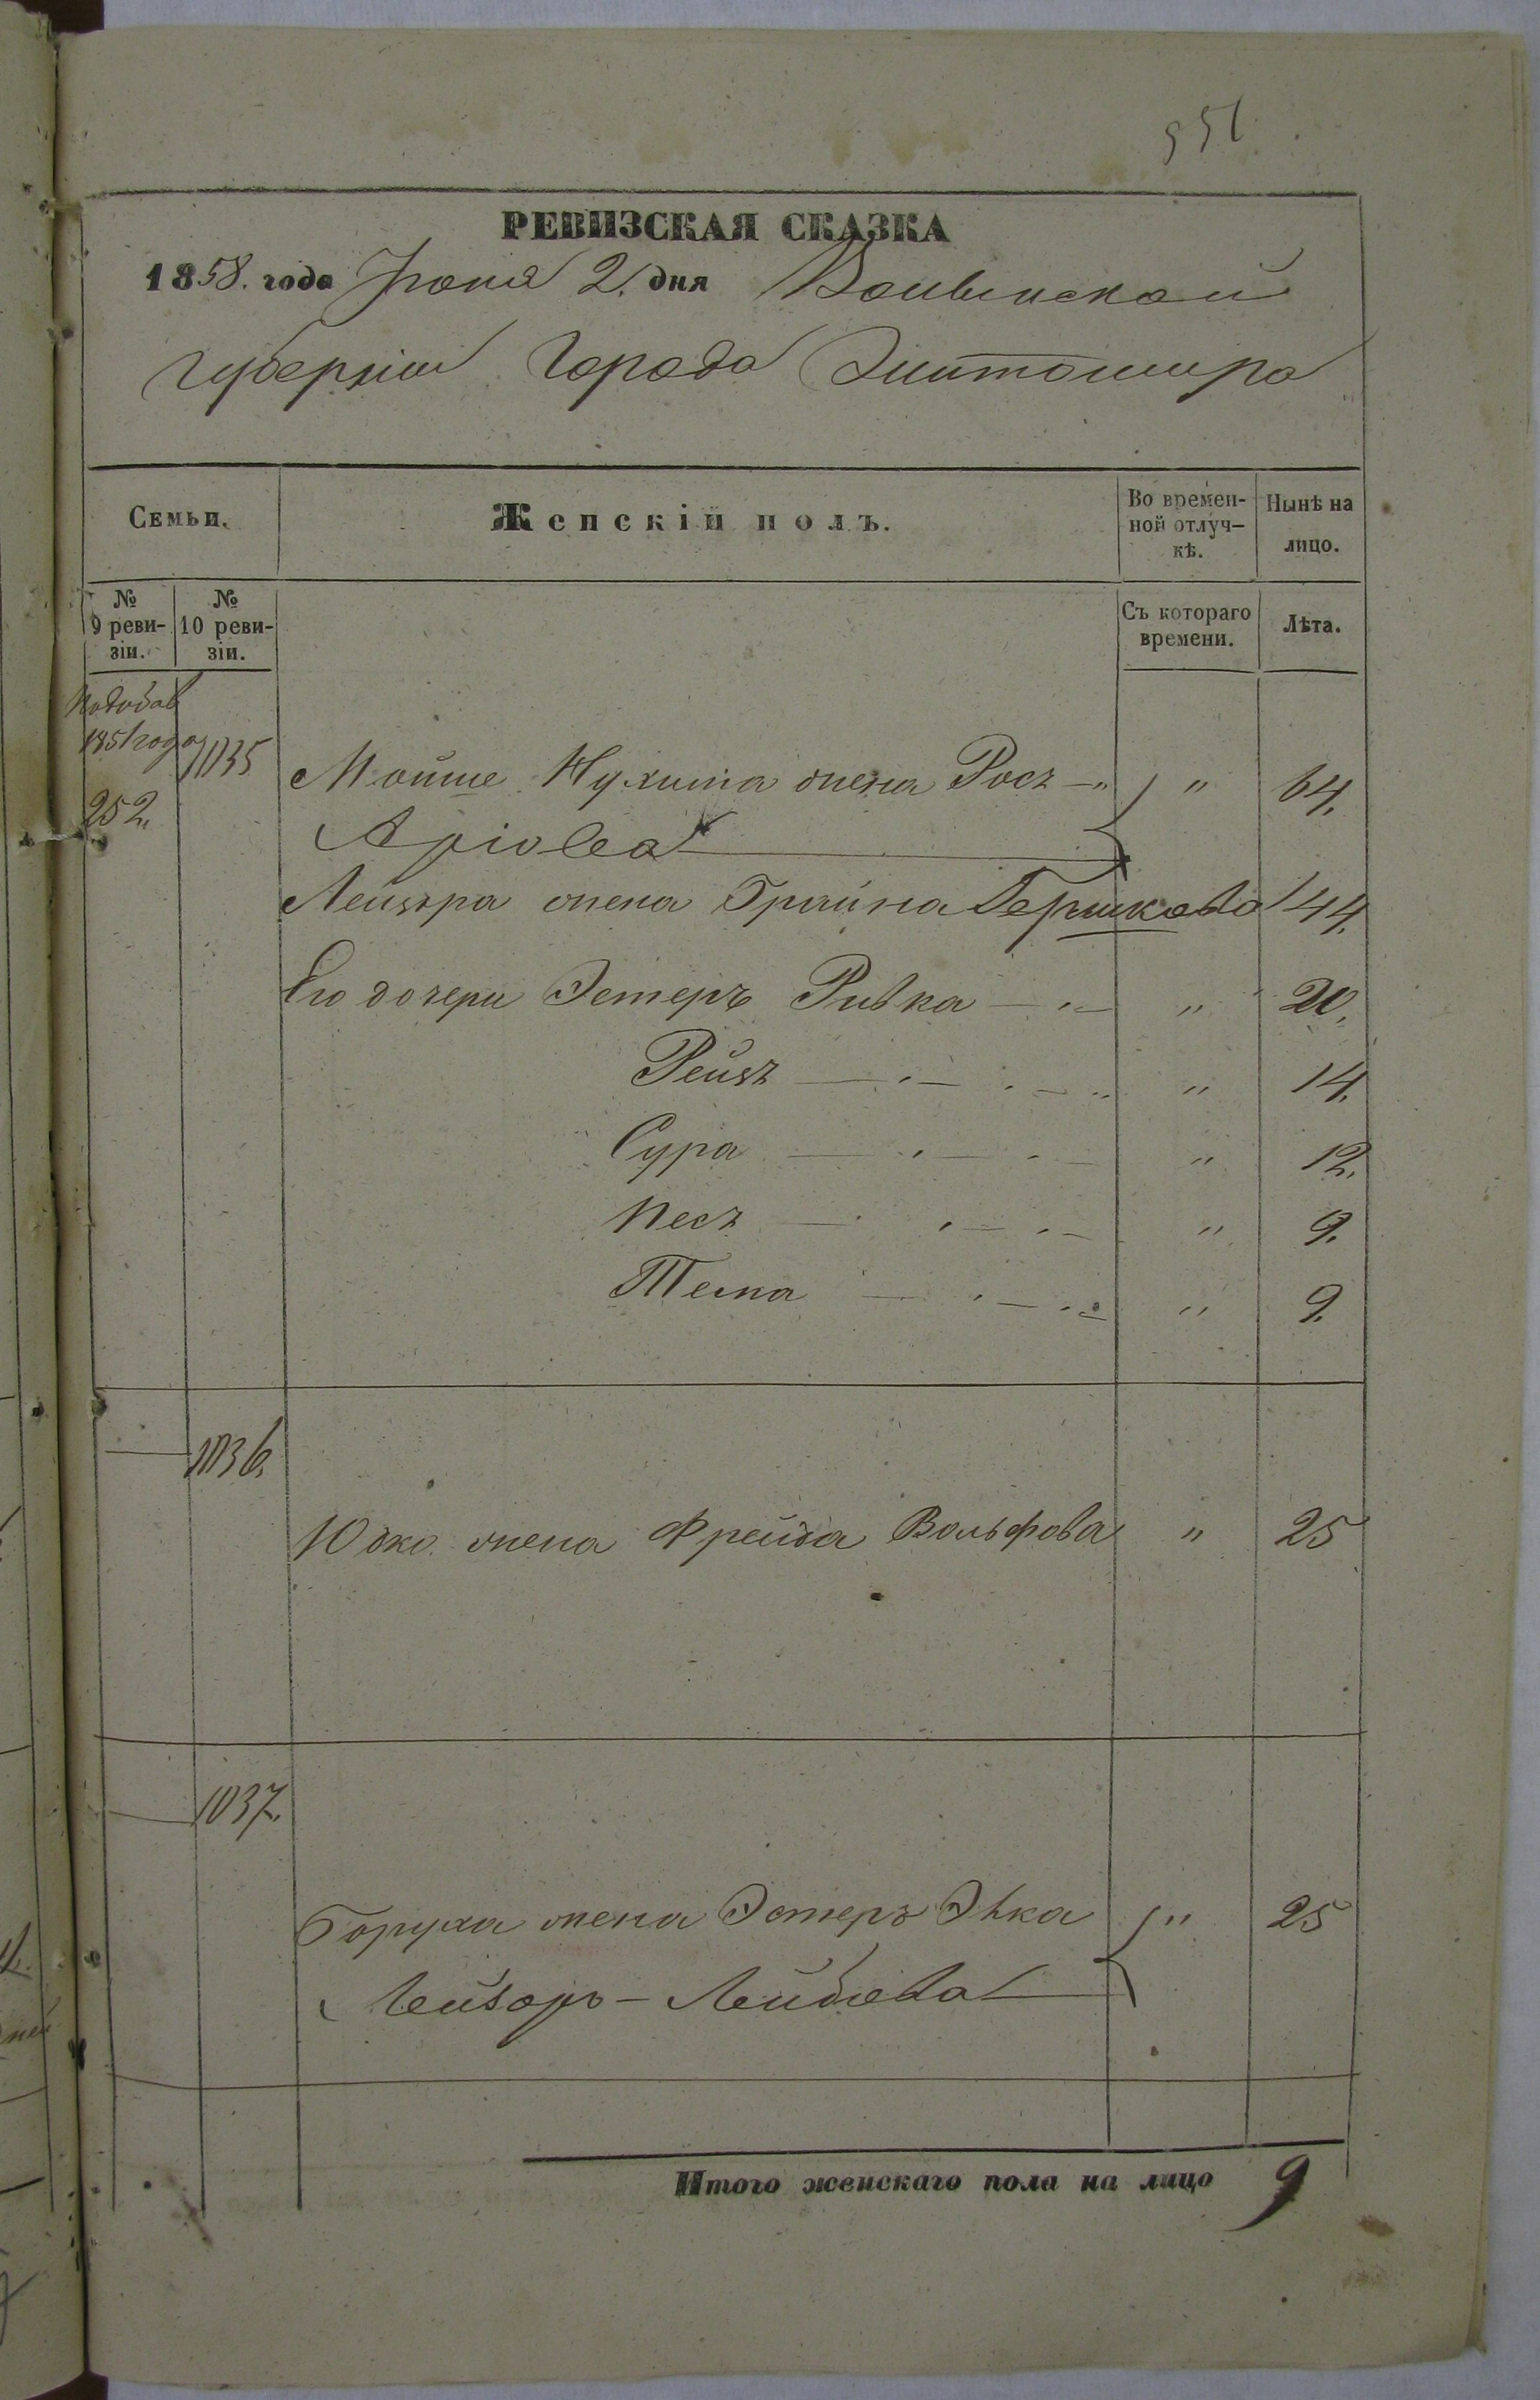 951
РЕВИЗСКАЯ СКАЗКА
1858. года Іюня 2. дня Волынской
губерніи Города Житомира
Семьи.
Женскій полъ.
Во времен-
ной отлуч-
кѣ.
Ныне на
лицо.
№
9 реви-
зіи.
№
10 реви-
зіи.
Съ котораго
времени.
Лѣта.
1851 года 1035
252.
Мойше Нухима жена Росъ " 64.
Лейзора жена Брайна Гершкова 44.
Его дочери Эстеръ Ривка " 20.
Рейзъ " 14.
Сура " 12.
Песъ " 9.
Тема " 9.
1036.
Юдко жена Фрейда Вольфова " 25
1037.
Боруха жена Эстеръ Эвка " 25
Лейзоръ-Лейбова
Итого женскаго пола на лицо 9